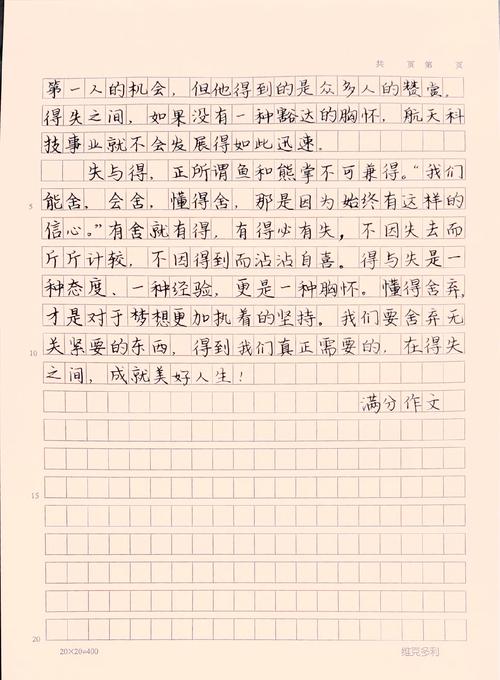 共 页 第 页
第一人的机会，但他得到的是众多人的赞赏。
得失之间，如果没有一种豁达的胸怀，航天科
技事业就不会发展得如此迅速。
失与得，正所谓鱼和熊掌不可兼得。“我们
5
能舍，会舍，懂得舍，那是因为始终有这样的
信心。”有舍就有得，有得必有失，不因失去而
斤斤计较，不因得到而沾沾自喜。得与失是一
种态度、一种经验，更是一种胸怀。懂得舍弃，
才是对于梦想更加执着的坚持。我们要舍弃无
10
关紧要的东西，得到我们真正需要的，在得失
之间，成就美好人生！
满分作文
15
20
20×20=400
维克多利